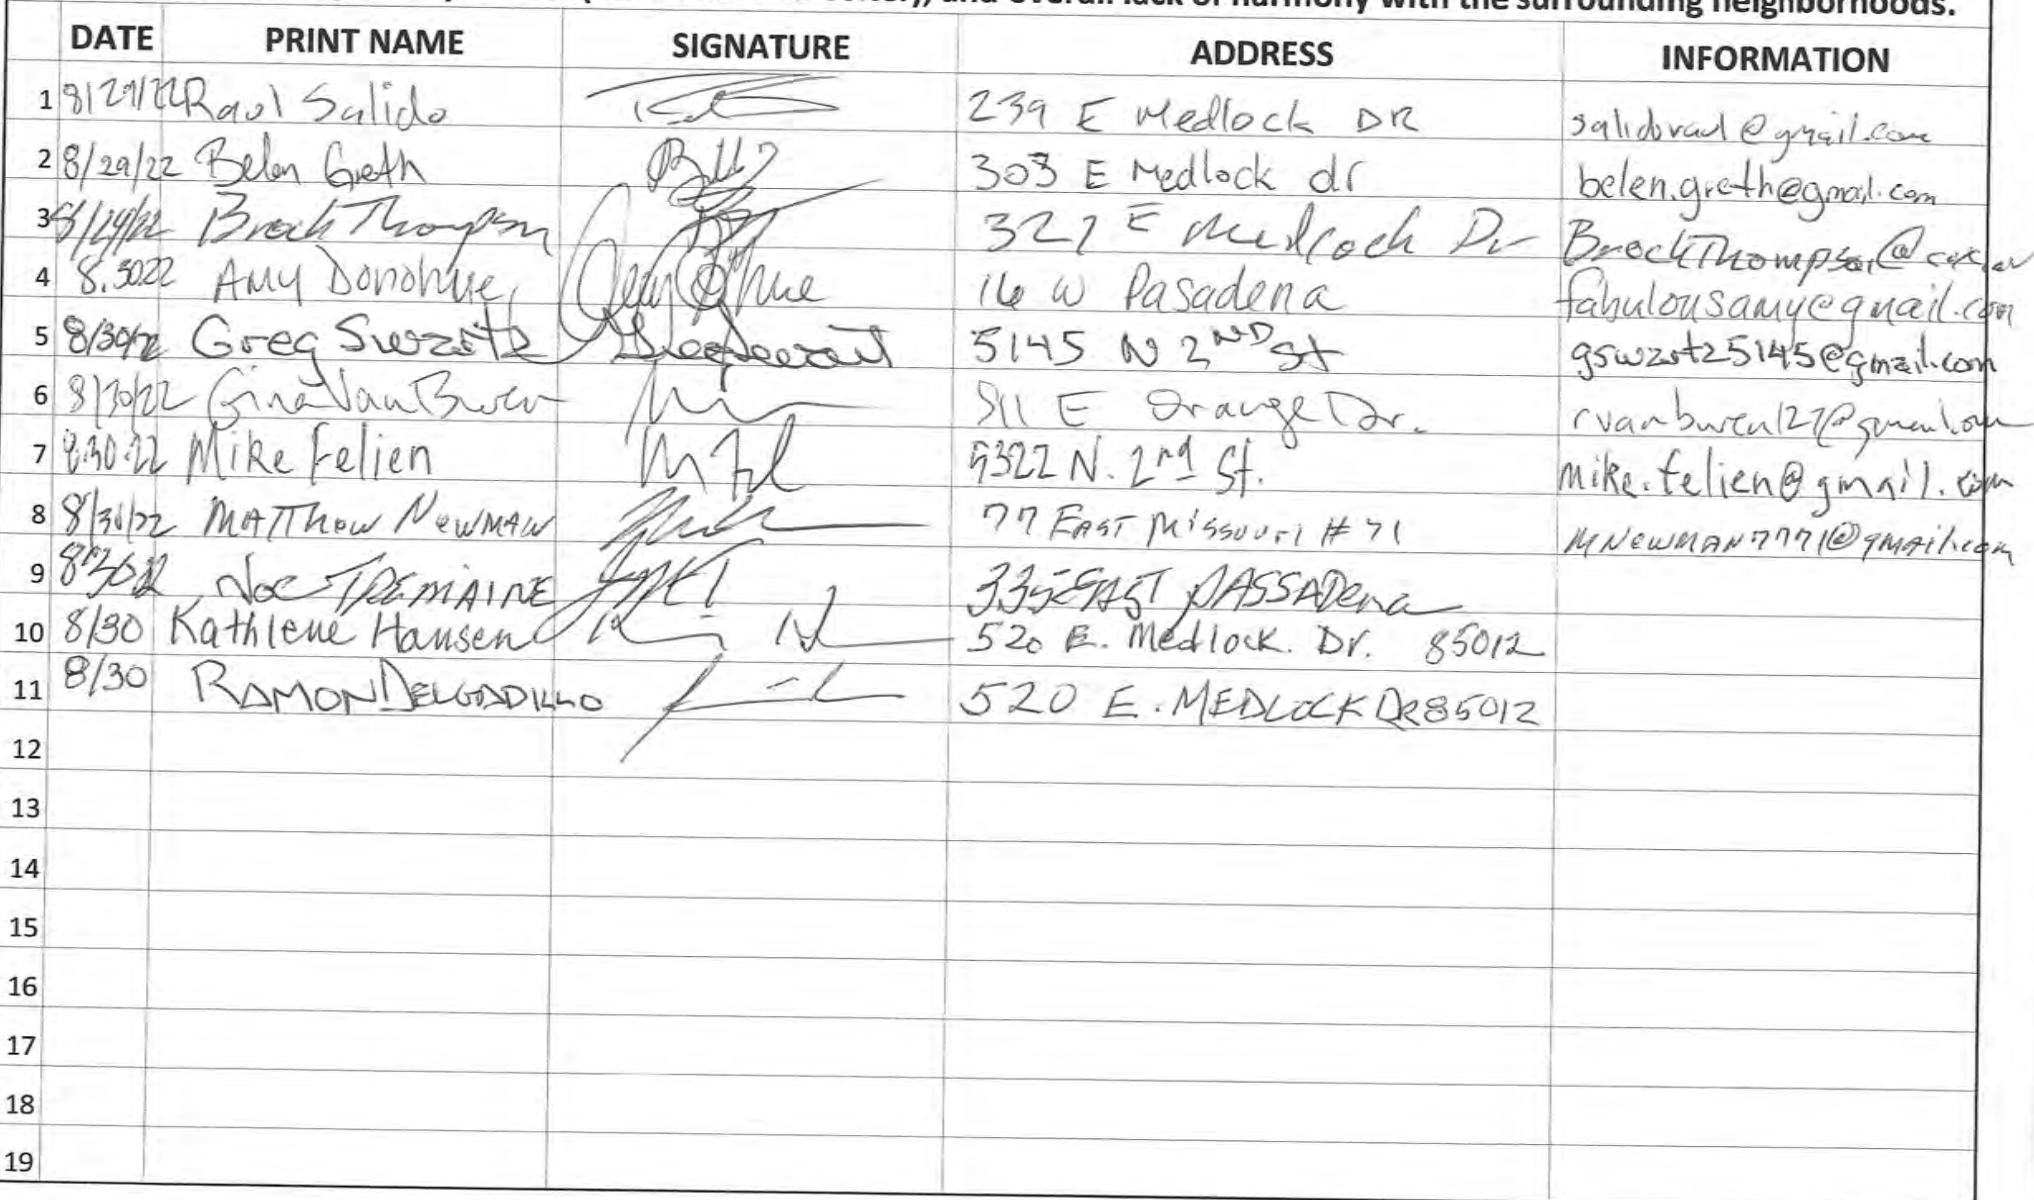 and overall lack of harmony with the surrounding neighborhoods.
DATE PRINT NAME SIGNATURE ADDRESS INFORMATION
1 8/29/22 Raul Salido 239 E Medlock DR salidoraul@gmail.com
2 8/29/22 Belen Greth 303 E Medlock dr belen.greth@gmail.com
3 8/29/22 Brock Thompson 327 E Medlock Dr BrockThompson@cox.net
4 8.30.22 Amy Donohue 16 W Pasadena fabulousamy@gmail.com
5 8/30/22 Greg Swartz 5145 N 2ND St gswzrtz5145@gmail.com
6 8/30/22 Gina Van Buren 511 E Orange Dr. rvanburen127@gmail.com
7 8.30.22 Mike Felien 5322 N. 2nd St. mike.felien@gmail.com
8 8/30/22 MATTHEW NEWMAN 77 EAST MISSOURI #71 MNEWMAN7771@gmail.com
9 8/30/22 TREMAINE 335 EAST PASSADena
10 8/30 Kathlene Hansen 520 E. Medlock. Dr. 85012
11 8/30 RAMON DELGADILLO 520 E. MEDLOCK DR 85012
12
13
14
15
16
17
18
19